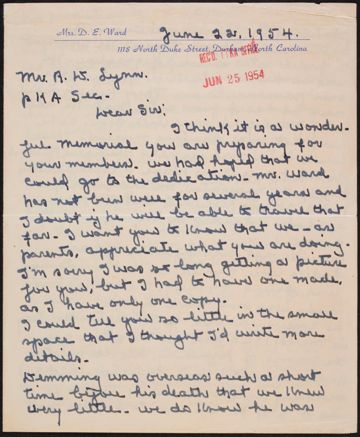 Mrs. D. E. Ward
June 22, 1954.
1118 North Duke Street, Durham, North Carolina
REC'D.
JUN 25 1954
Mr. R. W. Lynn.
p K A Sec.
Dear Sir:
I think it is a wonder-
ful memorial you are preparing for
your members. We had hoped that we
could go to the dedication. Mr. Ward
has not been well for several years and
I doubt if he will be able to travel that
far. I want you to know that we - as
parents, appreciate what you are doing.
I'm sorry I was so long getting a picture
for you, but I had to have one made,
as I have only one copy.
I could tell you so little in the small
space that I thought I'd write more
details.
Demming was overseas such a short
time before his death that we knew
very little. We do know he was